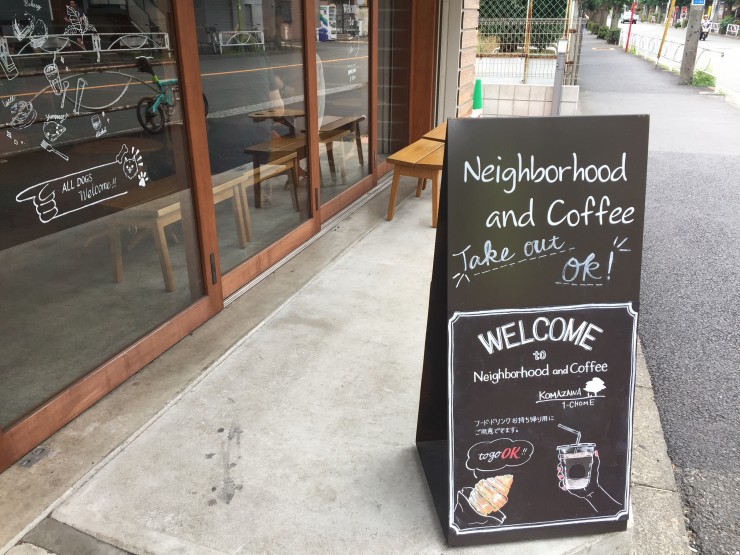 ALL DOGS
Welcome!!
Neighborhood
and Coffee
Take out
OK!
WELCOME
to
Neighborhood and Coffee
KOMAZAWA
1-CHOME
フード・ドリンクお持ち帰り用に
ご用意できます。
to go OK!!